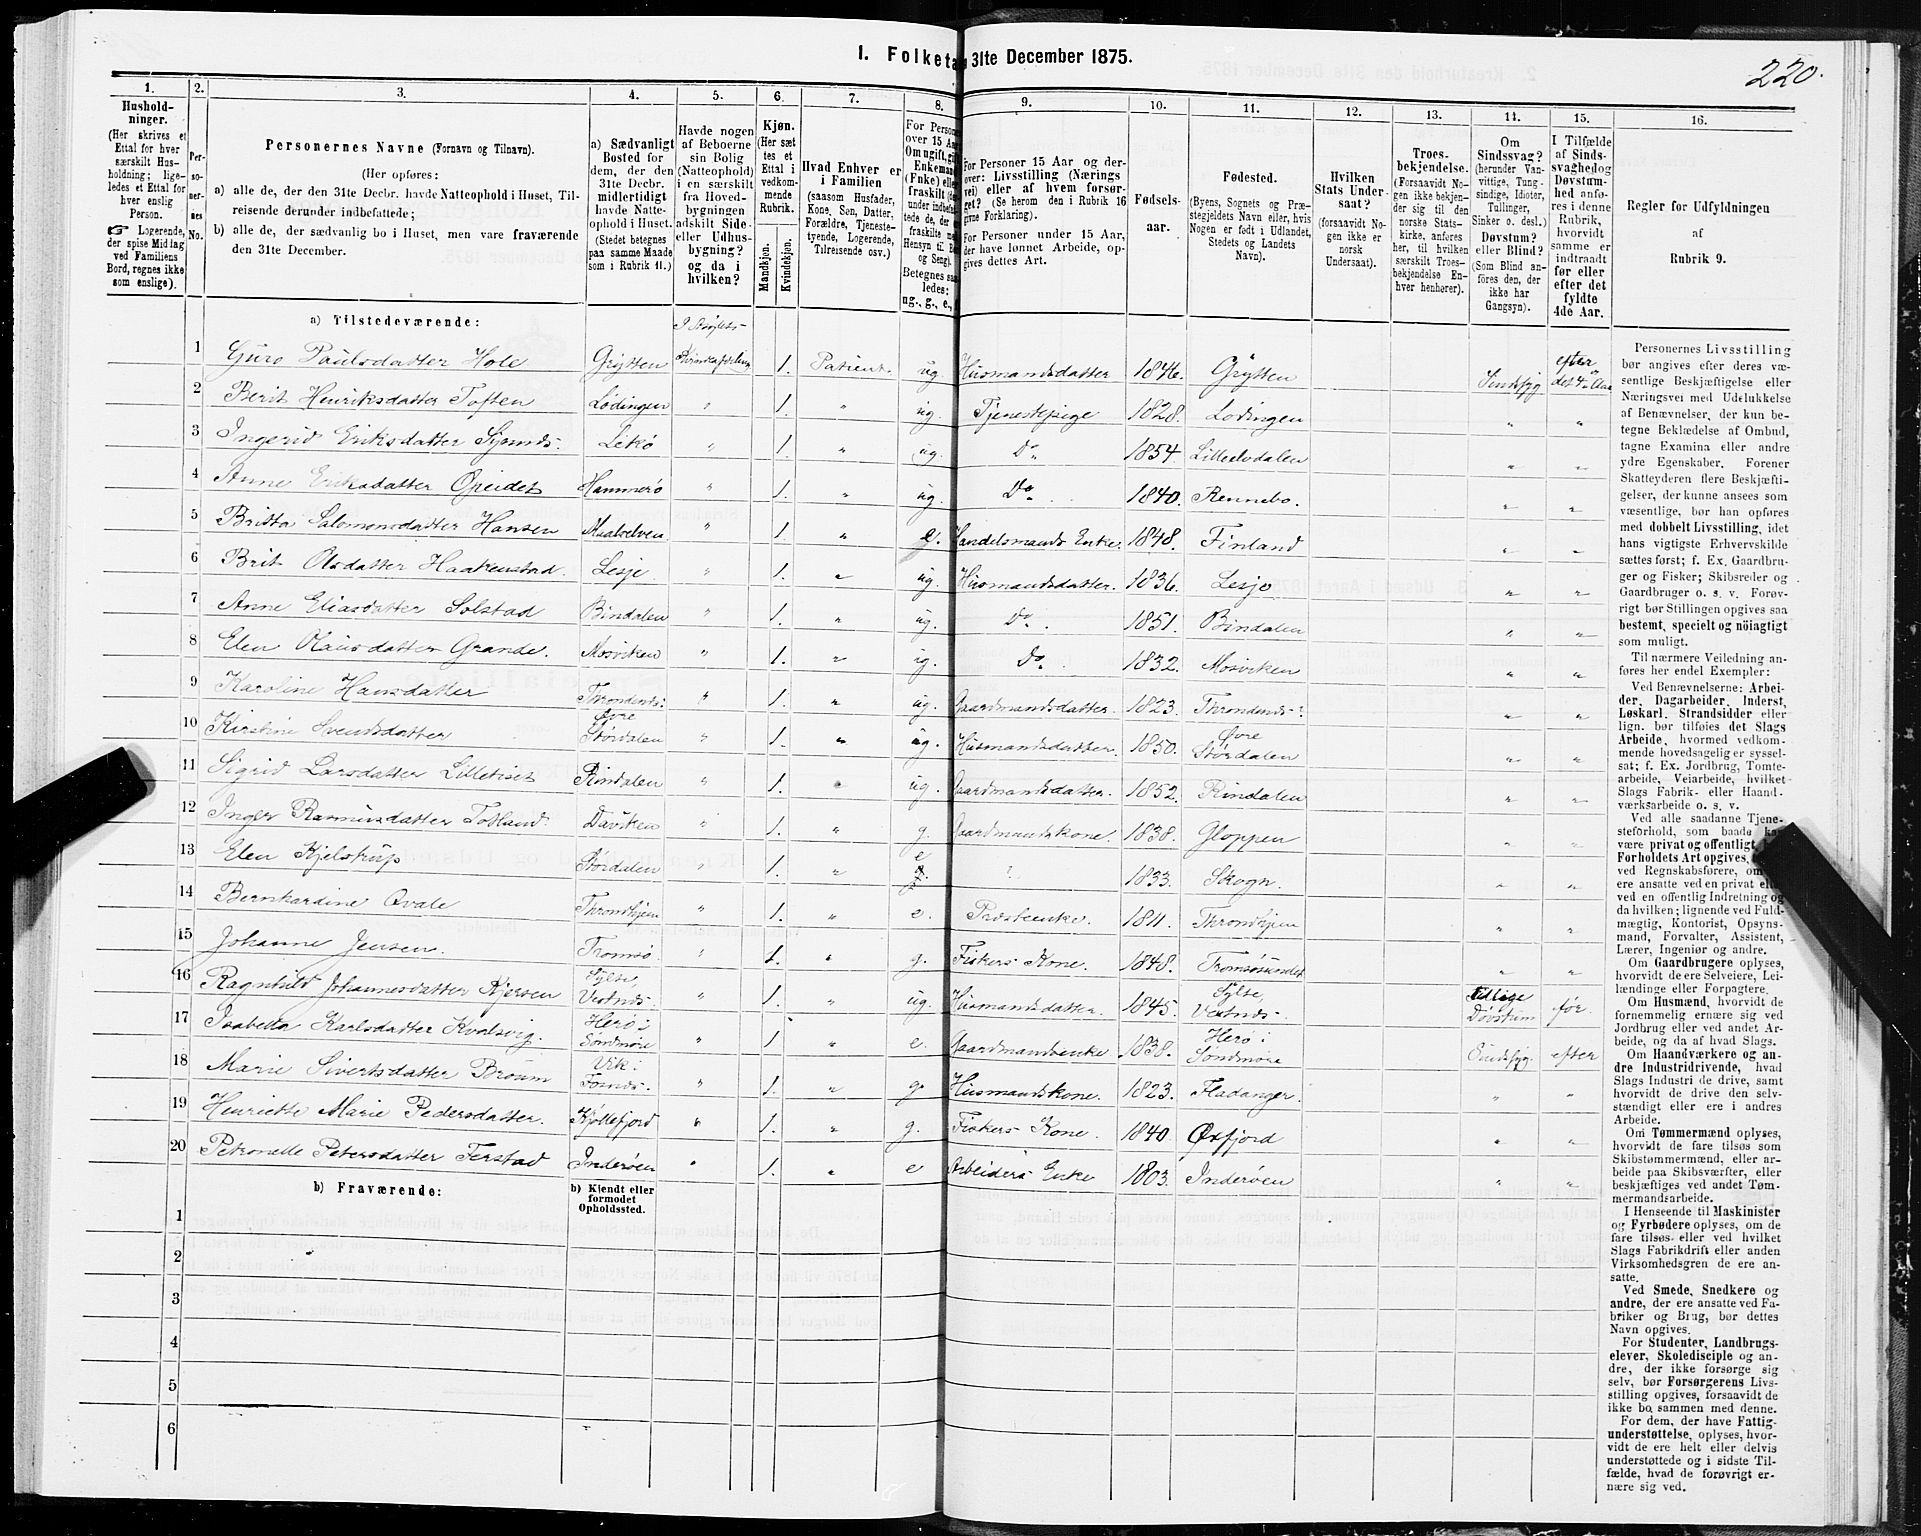 I. Folketa 31te December 1875.
220.
1.
Hushold-
ninger.
(Her skrives et
Ettal for hver
særskilt Hus-
holdning; lige-
ledes et Ettal for
hver enslig
Person.
☞ Logerende,
der spise Middag
ved Familiens
Bord, regnes ikke
som enslige).
2.
Per-
so-
ner-
nes
No.
3.
Personernes Navne (Fornavn og Tilnavn).
(Her opføres:
a) alle de, der den 31te Decbr. havde Natteophold i Huset, Til-
reisende derunder indbefattede;
b) alle de, der sædvanlig bo i Huset, men vare fraværende
den 31te December.
4.
a) Sædvanligt
Bosted for
dem, der den
31te Decbr.
midlertidigt
havde Natte-
ophold i Huset.
(Stedet betegnes
paa samme Maade
som i Rubrik 11.)
5.
Havde nogen
af Beboerne
sin Bolig
(Natteophold)
i en særskilt
fra Hoved-
bygningen
adskilt Side-
eller Udhus-
bygning?
og da i
hvilken?
6.
Kjøn.
(Her sæt
tes et
Ettal i
vedkom-
mende
Rubrik.
Mandkjøn.
Kvindekjøn.
7.
Hvad Enhver er
i Familien
(saasom Husfader,
Kone, Søn, Datter,
Forældre, Tjeneste-
tyende, Logerende,
Tilreisende osv.)
8.
For Persone
over 15 Aar
Om ugift, gi
Enkeman
(Enke) elle
fraskilt (de
under indbefat
tede de, de
fraskilte me
Hensyn til B
og Seng).
Betegnes saa
ledes:
ug., g., e.,
9.
For Personer 15 Aar og der-
over: Livsstilling (Nærings
vei) eller af hvem forsør-
get? (Se herom den i Rubrik 16
givne Forklaring).
For Personer under 15 Aar,
der have lønnet Arbeide, op-
gives dettes Art.
10.
Fødsels-
aar.
11.
Fødested.
(Byens, Sognets og Præ-
stegjeldets Navn eller, hvis
Nogen er født i Udlandet,
Stedets og Landets
Navn).
12.
Hvilken
Stats Under-
saat?
(forsaavidt No-
gen ikke er
norsk
Undersaat).
13.
Troes-
bekjendelse.
(Forsaavidt No-
gen ikke bekjen-
der sig til den
norske Stats-
kirke, anføres
her, til hvilken
særskilt Troes-
bekjendelse En-
hver henhører).
14.
Om
Sindssvag?
(herunder Van-
vittige, Tung-
sindige, Idioter,
Tullinger,
Sinker o. desl.)
Døvstum?
eller Blind?
(Som Blind an-
føres den, der
ikke har
Gangsyn).
15.
I Tilfælde
af Sinds-
svaghed og
Døvstum-
hed anfø-
res i denne
Rubrik,
hvorvidt
samme er
indtraadt
før eller
efter det
fyldte
4de Aar.
16.
Regler for Udfyldningen
af
Rubrik 9.
a) Tilstedeværende:
1 Guro Paulsdatter Hole Grytten 1. Patient ug. Husmandsdatter 1846. Grytten Sindssyg efter det 4de Aar
2 Berit Henriksdatter Toften Lødingen " 1. " ug. Tjenestepige 1828. Lodingen " "
3 Ingerid Eriksdatter Lekø " 1. " ug. Do 1854. Lilleelvdalen " "
4 Anne Eriksdatter Opeidet Hammerø " 1. " ug. Do. 1840. Rennebo. " "
5 Britta Salomonsdatter Hansen Maalselven " 1. " e. Handelsmands Enke. 1848. Finland " "
6 Brit Olsdatter Haakenstad. Lesje. " 1. " ug. Husmandsdatter. 1836. Lesje " "
7 Anne Eliasdatter Solstad Bindalen " 1. " ug. Do. 1851. Bindalen " "
8 Elen Olausdatter Grande. Mosviken " 1. " ug. Do. 1832. Mosviken " "
9 Karoline Hansdatter Throndenæs: " 1. " ug. Gaardmandsdatter. 1823. Throndenæs: " "
10 Kirstine Svendsdatter Øvre Størdalen " 1. " ug. Husmandsdatter. 1850. Øvre Størdalen " "
11 Sigrid Larsdatter Lilletiset Rindalen " 1. " ug. Gaardmandsdatter. 1852. Rindalen " "
12 Inger Rasmusdatter Totland. Daviken " 1. " g. Gaardmandskone. 1838. Gloppen " "
13 Elen Kjelstrup Størdalen " 1. " e " 1833. Skogn. " "
14 Bernhardine Qvale Throndhjem " 1. " e. Præsteenke. 1811. Throndhjem " "
15 Johanne Jensen. Tromsø. " 1. " g. Fiskers Kone. 1848. Tromsøsundet " "
16 Ragnhild Johannesdatter Kjersen Sylte, Vestnæs. " 1. " ug. Husmandsdatter. 1845. Sylte, Vestnæs. Døvstum før.
17 Isabella Karlsdatter Kvalsvig. Herø: Søndmøre " 1. " e. Gaardmandsenke 1838. Herø: Søndmøre Sindssyg efter
18 Marie Sivertsdatter Broum Vik: Fosnæs. " 1. " g. Husmandskone. 1823. Fladanger. " "
19 Henriette Marie Pedersdatter. Kjøllefjord " 1. " g. Fiskers Kone. 1840. Øxfjord " "
20 Petronelle Petersdatter Ferstad Inderøen " 1. " e Arbeiders Enke 1803. Inderøen " "
b) Fraværende:
b) Kjendt eller
formodet
Opholdssted.
1
2
3
4
5
6
Personernes Livsstilling
bør angives efter deres væ-
sentlige Beskjæftigelse eller
Næringsvei med Udelukkelse
af Benævnelser, der kun be-
tegne Beklædelse af Ombud,
tagne Examina eller andre
ydre Egenskaber. Forener
Skatteyderen flere Beskjæfti-
gelser, der kunne ansees som
væsentlige, bør han opføres
med dobbelt Livsstilling, idet
hans vigtigste Erhvervskilde
sættes først; f. Ex. Gaardbru-
ger og Fisker; Skibsreder og
Gaardbruger o. s. v. Forøv-
rigt bør Stillingen opgives saa
bestemt, specielt og nöiagtigt
som muligt.
Til nærmere Veiledning an-
føres her endel Exempler:
Ved Benævnelserne: Arbei-
der, Dagarbeider, Inderst,
Løskarl, Strandsidder eller
lign. bør tilføies det Slags
Arbeide, hvormed vedkom-
mende hovedsagelig er syssel-
sat; f. Ex. Jordbrug, Tomte-
arbeide, Veiarbeide, hvilket
Slags Fabrik- eller Haand-
værksarbeide o. s. v.
Ved alle saadanne Tjene-
steforhold, som baade ka
være privat og offentligt,
Forholdets Art opgives,
ved Regnskabsførere, om
ere ansatte ved en privat elle
ved en offentlig Indretning og
da hvilken; lignende ved Fuld-
mægtig, Kontorist, Opsyns-
mand, Forvalter, Assistent,
Lærer, Ingeniør og andre.
Om Gaardbrugere oplyses,
hvorvidt de ere Selveiere, Lei-
lændinge eller Forpagtere.
Om Husmænd, hvorvidt de
fornemmelig ernære sig ved
Jordbrug eller ved andet Ar-
beide, og da af hvad Slags.
Om Haandværkere og an-
dre Industridrivende, hvad
Slags Industri de drive, samt
hvorvidt de drive den selv-
stændigt eller ere i andres
Arbeide.
Om Tømmermænd oplyses,
hvorvidt de fare tilsøs som
Skibstømmermænd, eller ar-
beide paa Skibsværfter, eller
beskjæftiges ved andet Tøm-
mermandsarbeide.
I Henseende til Maskinister
og Fyrbødere oplyses, om de
fare tilsøs eller ved hvilket
Slags Fabrikdrift eller anden
Virksomhedsgren de ere an-
satte.
Ved Smede, Snedkere og
andre, der ere ansatte ved Fa-
briker og Brug, bør dettes
Navn opgives.
For Studenter, Landbrugs-
elever, Skoledisciple og an-
dre, der ikke forsørge sig
selv, bør Forsørgerens Livs-
stilling opgives, forsaavidt de
ikke bo sammen med denne.
For dem, der have Fattig-
understøttelse, oplyses, hvor-
vidt de ere helt eller delvis
understøttede og i sidste Til-
fælde, hvad de forøvrigt er-
nære sig ved.